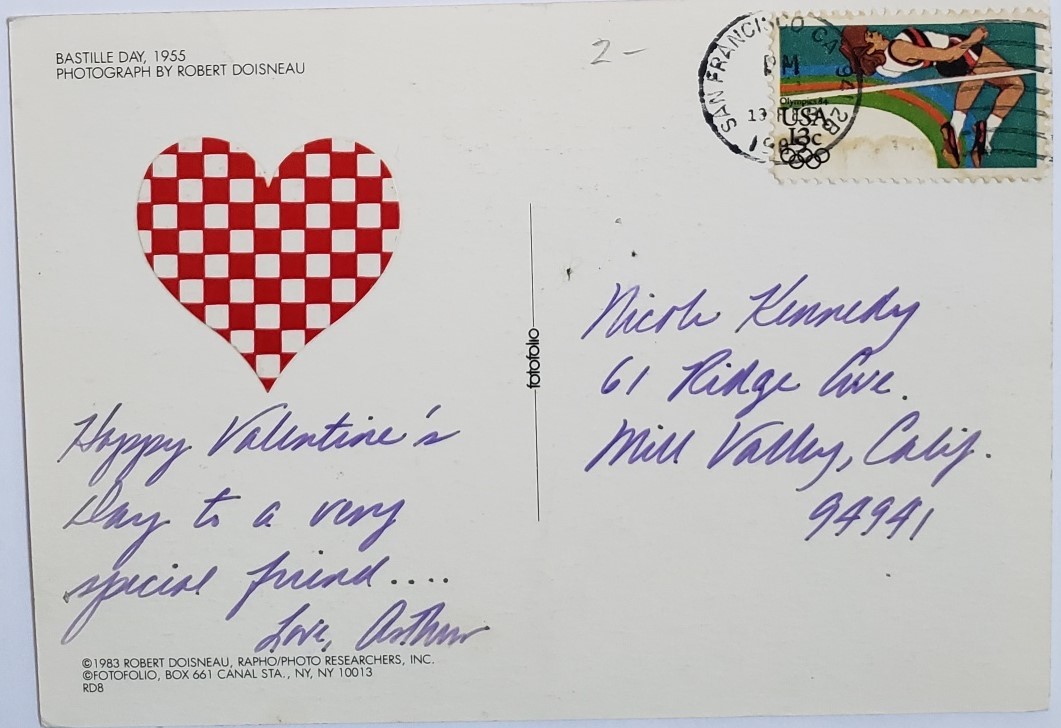 BASTILLE DAY, 1955
PHOTOGRAPH BY ROBERT DOISNEAU
2-
SAN FRANCISCO CA
PM
13 FEB
Olympics 84
USA
13c
Happy Valentine's
Day to a very
special friend....
Love, Arthur
©1983 ROBERT DOISNEAU, RAPHO/PHOTO RESEARCHERS, INC.
©FOTOFOLIO, BOX 661 CANAL STA., NY, NY 10013
RD8
fotofolio
Nicole Kennedy
61 Ridge Ave.
Mill Valley, Calif.
94941